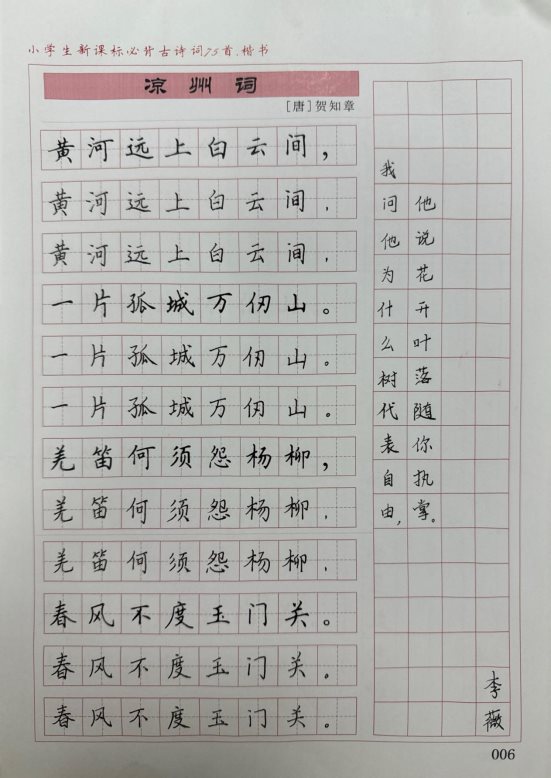 小学生新课标必背古诗词75首.楷书
凉州词
[唐]贺知章
黄河远上白云间，
黄河远上白云间.
黄河远上白云间.
一片孤城万仞山。
一片孤城万仞山。
一片孤城万仞山。
羌笛何须怨杨柳，
羌笛何须怨杨柳.
羌笛何须怨杨柳.
春风不度玉门关。
春风不度玉门关。
春风不度玉门关。
我问他为什么树代表自由，
他说花开叶落随你执掌。
李薇
006